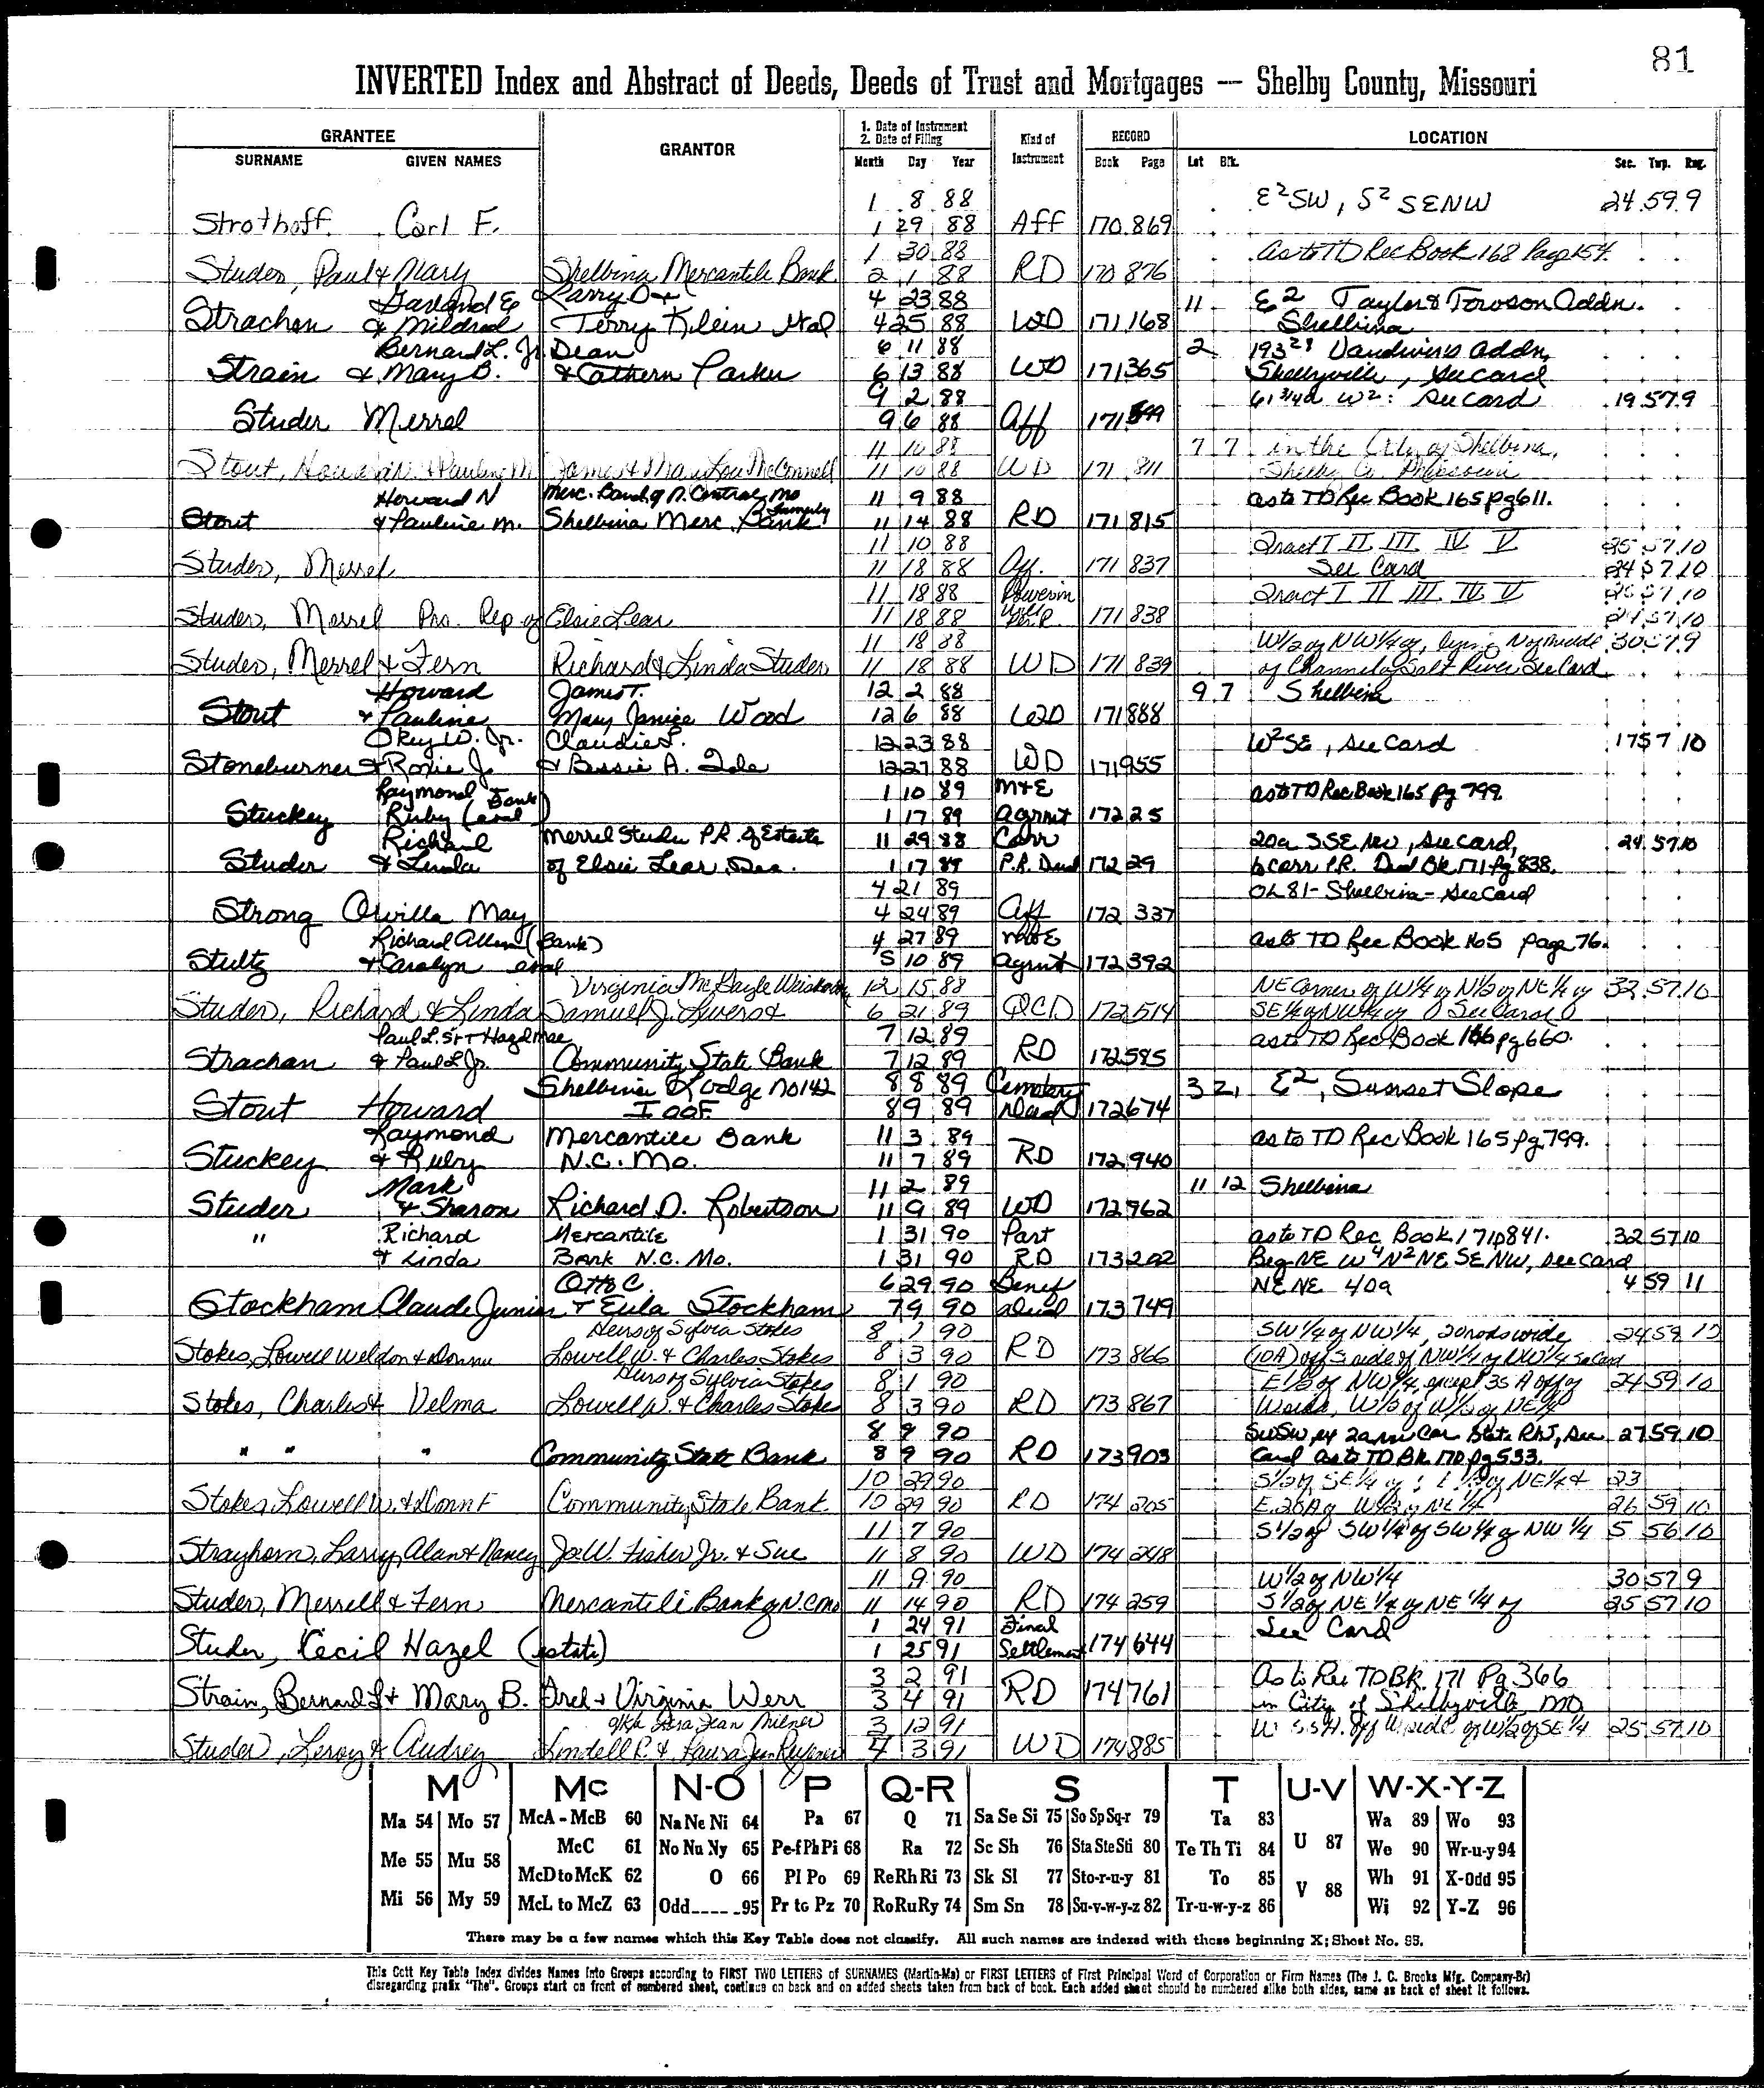 81
INVERTED Index and Abstract of Deeds, Deeds of Trust and Mortgages — Shelby County, Missouri
GRANTEE
SURNAME GIVEN NAMES
GRANTOR
1. Date of Instrument
2. Date of Filing
Month Day Year
Kind of Instrument
RECORD
Book Page
LOCATION
Lot Blk. Sec. Twp. Rng.
1 8 88 E2SW, S2 SENW 24 59 9
Strothoff Carl F. 1 29 88 Aff 170 869
1 30 88 as to TD Rec Book 168 Page 154
Studer, Paul & Mary Shelbina Mercantile Bank 2 1 88 RD 170 876
Garland E Larry D + 4 23 88 11 E2 Taylor & Towson Addn.
Strachan & Mildred Terry Klein et al 4 25 88 WD 171 168 Shelbina
Bernard L. Jr. Dean 6 11 88 2 Vandivers addn,
Strain & Mary B. & Cathern Parker 6 13 88 WD 171 365 Shelbyville, see card
9 2 88 61 3/4a W2: see card 19 57 9
Studer Merrel 9 6 88 Aff 171
11 10 88 7 7 in the City of Shelbina,
Stout, Howard N. & Pauline M. James & Mary Lou McConnell 11 10 88 WD 171 811 Shelby Co. Missouri
Howard N Merc. Bank of N. Central Mo 11 9 88 as to TD Rec Book 165 pg 611.
formerly
Stout & Pauline M. Shelbina Merc. Bank 11 14 88 RD 171 815
11 10 88 Tract I II III IV V 25 57 10
Studer, Merrel 11 18 88 Aff. 171 837 See Card 24 57 10
11 18 88 Tract I II III IV V 25 57 10
Studer, Merrel Prs. Rep of Elsie Lear 11 18 88 171 838 24 57 10
11 18 88 W1/2 of NW1/4 of, lying N of middle 30 57 9
Studer, Merrel & Fern Richard & Linda Studer 11 18 88 WD 171 839 of Channel of Salt River See Card
Howard James T. 12 2 88 9 7 Shelbina
Stout & Pauline Mary Janice Wood 12 6 88 WD 171 888
Okey W. Jr. Claudie L. 12 23 88 W2SE, see card 17 57 10
Stoneburner & Roxie J. & Bessie A. Ide 12 27 88 WD 171 955
Raymond 1 10 89 M+E as to TD Rec Book 165 pg 799.
Stuckey Ruby (Bank et al) 1 17 89 agrmt 172 25
Richard Merrel Studer P.R. of Estate 11 29 88 Corr 20a SSE NW, see card, 24 57 10
Studer & Linda of Elsie Lear, Dec. 1 17 89 P.R. Deed 172 29 to corr P.R. Deed Bk 171 pg 838.
4 21 89 OL 81 - Shelbina - see card
Strong Orvilla May 4 24 89 Aff 172 337
Richard Allen (Bank) 4 27 89 M+E as to TD Rec Book 165 page 76.
Stultz & Carolyn et al 5 10 89 agrmt 172 392
Virginia McGayle 12 15 88 NE Corner of W1/4 of N1/2 of NE1/4 of 32 57 10
Studer, Richard & Linda Samuel J. Livers & 6 21 89 QCD 172 514 SE1/4 of NW1/4 of See Card
Paul L. Sr + Hazel Mae 7 12 89 as to TD Rec Book 166 pg 660.
Strachan & Paul L Jr. Community State Bank 7 12 89 RD 172 585
Shelbina Lodge No 142 8 8 89 Cemetery 3 21 E2, Sunset Slope
Stout Howard IOOF 8 9 89 deed 172 674
Raymond Mercantile Bank 11 3 89 as to TD Rec Book 165 pg 799.
Stuckey & Ruby N.C. Mo. 11 7 89 RD 172 940
Mark 11 2 89 11 12 Shelbina
Studer & Sharon Richard D. Robertson 11 9 89 WD 172 962
" Richard Mercantile 1 31 90 Part as to TD Rec Book 171 p 841. 32 57 10
& Linda Bank N.C. Mo. 1 31 90 RD 173 202 Beg NE W4 N2 NE SE NW, see card
Otto C 6 29 90 Benef NE NE 40a 4 59 11
Stockham Claude Junior & Eula Stockham 7 9 90 deed 173 749
Heirs of Sylvia Stokes 8 1 90 SW1/4 of NW1/4, 20 rods wide 24 59 10
Stokes, Lowell Weldon & Donna Lowell W. & Charles Stokes 8 3 90 RD 173 866 (10A) off S side of NW1/4 of NW1/4 See Card
Heirs of Sylvia Stokes 8 1 90 E1/2 of NW1/4, except 35 A off of 24 59 10
Stokes, Charles & Velma Lowell W. & Charles Stokes 8 3 90 RD 173 867 W side, W1/2 of W1/2 of NE1/4
8 9 90 SWSW, ex 2a in Cor State RW, see 27 59 10
" " " Community State Bank 8 9 90 RD 173 903 Card as to TD Bk 170 pg 533.
10 29 90 S1/2 of SE1/4 of NE1/4 & 23
Stokes, Lowell W. & Donna F Community State Bank 10 29 90 RD 174 205 E 26A of W1/2 of NE1/4 26 59 10
11 7 90 S1/2 of SW1/4 of SW1/4 of NW1/4 5 56 10
Strayhorn, Larry Alan & Nancy Joe W. Fisher Jr. & Sue 11 8 90 WD 174 248
11 9 90 W1/2 of NW1/4 30 57 9
Studer, Merrell & Fern Mercantile Bank of N.C. Mo 11 14 90 RD 174 259 S1/2 of NE1/4 of NE1/4 of 25 57 10
1 24 91 Final See Card
Studer, Cecil Hazel (estate) 1 25 91 Settlement 174 644
3 2 91 As to Rec TD BK. 171 Pg 366
Strain, Bernard L & Mary B. Orel & Virginia Werr 3 4 91 RD 174 761 in City of Shelbyville, MO
a/k/a Jean Milner 3 12 91 W off W side of W1/2 of SE1/4 25 57 10
Studer, Leroy & Audrey Lindell R. & Laura Jean 4 3 91 WD 174 885
M Mc N-O P Q-R S T U-V W-X-Y-Z
Ma 54 Mo 57 McA - McB 60 Na Ne Ni 64 Pa 67 Q 71 Sa Se Si 75 So Sp Sq-r 79 Ta 83 Wa 89 Wo 93
McC 61 No Nu Ny 65 Pe-f Ph Pi 68 Ra 72 Sc Sh 76 Sta Ste Sti 80 Te Th Ti 84 U 87 We 90 Wr-u-y 94
Me 55 Mu 58 McD to McK 62 O 66 Pl Po 69 Re Rh Ri 73 Sk Sl 77 Sto-r-u-y 81 To 85 V 88 Wh 91 X-Odd 95
Mi 56 My 59 McL to McZ 63 Odd_____95 Pr to Pz 70 Ro Ru Ry 74 Sm Sn 78 Su-v-w-y-z 82 Tr-u-w-y-z 86 Wi 92 Y-Z 96
There may be a few names which this Key Table does not classify. All such names are indexed with those beginning X; Sheet No. 95.
This Cott Key Table Index divides Names into Groups according to FIRST TWO LETTERS of SURNAMES (Martin-Ma) or FIRST LETTERS of First Principal Word of Corporation or Firm Names (The J. C. Brooks Mfg. Company-Br)
disregarding prefix "The". Groups start on front of numbered sheet, continue on back and on added sheets taken from back of book. Each added sheet should be numbered alike both sides, same as back of sheet it follows.